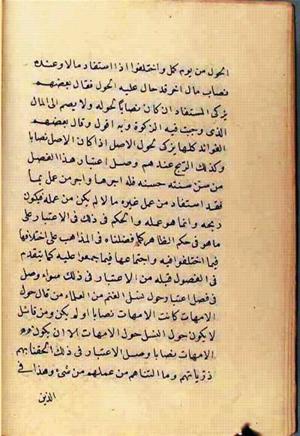 الحول من يوم كل واختلفوا اذا استفاد مالا وعنده
نصاب مال اخر قد حال عليه الحول فقال بعضهم
يزكى المستفاد ان كان نصابا لحوله ولا يضم الى المال
الذى وجبت فيه الزكوة وبه اقول وقال بعضهم
الفوائد كلها يزكى لحول الاصل اذا كان الاصل نصابا
وكذلك الربح عندهم وصل اعتبار هذا الفصل
من سن سنته حسنه فله اجرها واجر من عمل بها
فقد استفاد من عمل غيره ما لا يكن من عمله فيكون
ربحه وانما هو عمله والحكم فى ذلك فى الاعتبار على
ما هو فى حكم الظاهر كما فصلناه فى المذاهب على اختلافها
فيما اختلفوا فيه واجتماعها فيما اجمعوا عليه كما يتقدم
فى الفصول قبله من الاعتبار فى ذلك سواء وصل
فى فصل اعتبار حول نسل الغنم من العلماء من قال حول
الامهات كانت الامهات نصابا او لم يكن ومن قائل
لا يكون حول النسل حول الامهات الا ان يكون
الامهات نصابا وصل الاعتبار فى ذلك الحقنا بهم
ذرياتهم وما التناهم من عملهم من شئ وهذا فى
الذين